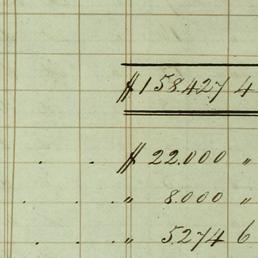 $158427 4
. . $ 22.000 "
. . " 8.000 "
. . " 5.274 6